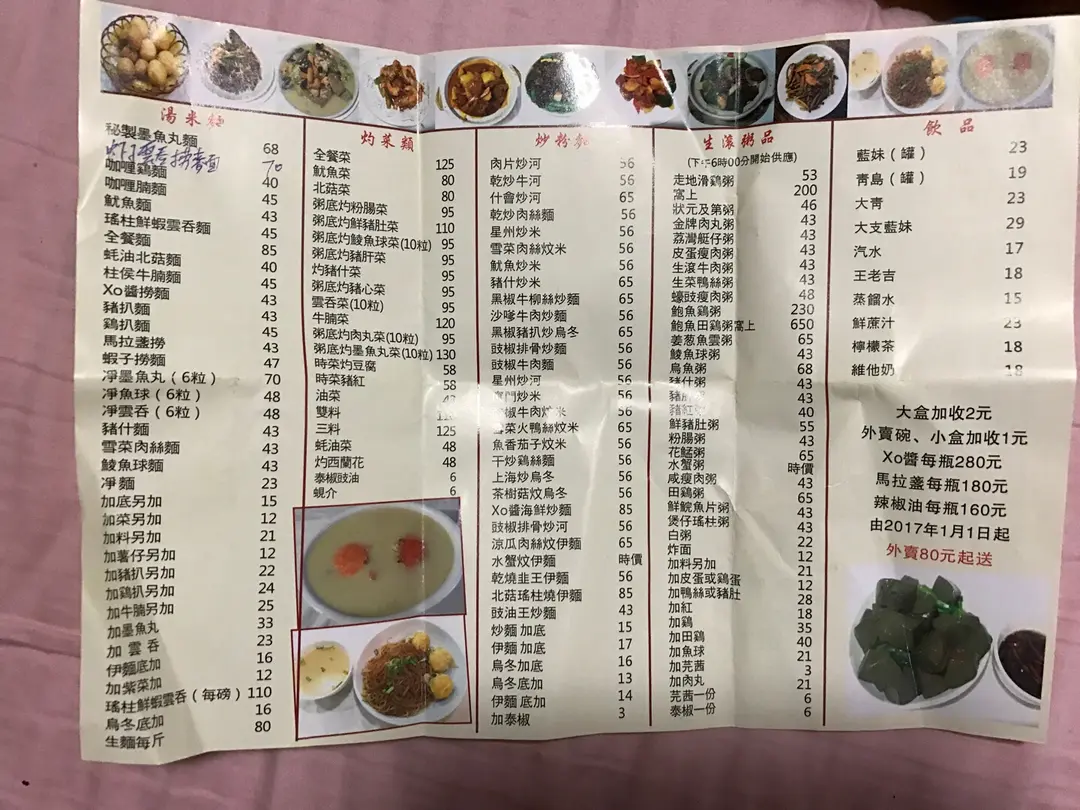 湯米麵
秘製墨魚丸麵 68
雲吞撈 70
咖喱鷄麵 40
咖喱腩麵 45
魷魚麵 43
瑤柱鮮蝦雲吞麵 45
全餐麵 85
蚝油北菇麵 40
柱侯牛腩麵 45
Xo醬撈麵 43
豬扒麵 43
鷄扒麵 45
馬拉盞撈 43
蝦子撈麵 47
凈墨魚丸(6粒) 70
凈魚球(6粒) 48
凈雲吞(6粒) 48
豬什麵 43
雪菜肉絲麵 43
鯪魚球麵 43
凈麵 23
加底另加 15
加菜另加 12
加料另加 21
加薯仔另加 12
加豬扒另加 22
加鷄扒另加 24
加牛腩另加 25
加墨魚丸 33
加雲吞 23
伊麵底加 16
加紫菜加 12
瑤柱鮮蝦雲吞(每磅) 110
烏冬底加 16
生麵每斤 80
灼菜類
全餐菜 125
魷魚菜 80
北菇菜 80
粥底灼粉腸菜 95
粥底灼鮮豬肚菜 110
粥底灼鯪魚球菜(10粒) 95
粥底灼豬肝菜 95
灼豬什菜 95
粥底灼豬心菜 95
雲吞菜(10粒) 95
牛腩菜 120
粥底灼肉丸菜(10粒) 95
粥底灼墨魚丸菜(10粒) 130
時菜灼豆腐 58
時菜豬紅 58
油菜
雙料
三料 125
蚝油菜 48
灼西蘭花 48
泰椒豉油 6
蜆介 6
炒粉麵
肉片炒河 56
乾炒牛河 56
什會炒河 65
乾炒肉絲麵 56
星州炒米 56
雪菜肉絲炆米 56
魷魚炒米 56
豬什炒米 65
黑椒牛柳絲炒麵 65
沙嗲牛肉炒麵 56
黑椒豬扒炒烏冬 65
豉椒排骨炒麵 56
豉椒牛肉麵 56
星州炒河 56
門炒米 56
椒牛肉炆米 56
雪菜火鴨絲炆米 65
魚香茄子炆米 56
干炒鷄絲麵 56
上海炒麵 56
茶樹菇炆烏冬 56
Xo醬海鮮炒麵 85
豉椒排骨炒河 56
涼瓜肉絲炆伊麵 65
水蟹炆伊麵 時價
乾燒韭王伊麵 56
北菇瑤柱燒伊麵 85
豉油王炒麵 43
炒麵 加底 15
伊麵 加底 17
烏冬加底 16
烏冬底加 13
伊麵 底加 14
加泰椒 3
生滾粥品
(下午6時00分開始供應)
走地滑鷄粥 53
窩上 200
狀元及第粥 46
金牌肉丸粥 43
荔灣艇仔粥 43
皮蛋瘦肉粥 43
生滾牛肉粥 43
生菜鴨絲粥 43
蠔豉瘦肉粥 48
鮑魚鷄粥 230
鮑魚田鷄粥窩上 650
姜葱魚雲粥 65
鯪魚球粥 43
烏魚粥 68
豬什粥 43
豬粥 43
豬紅粥 40
鮮豬肚粥 55
粉腸粥 43
花鯭粥 65
水蟹粥 時價
咸瘦肉粥 43
田鷄粥 65
鮮鯇魚片粥 65
煲仔瑤柱粥 43
白粥 22
炸面 12
加料另加 21
加皮蛋或鷄蛋 12
加鴨絲或豬肚 28
加紅 18
加鷄 35
加田鷄 40
加魚球 21
加芫茜 3
加肉丸 21
芫茜一份 6
泰椒一份 6
飲品
藍妹(罐) 23
靑島(罐) 19
大靑 23
大支藍妹 29
汽水 17
王老吉 18
蒸餾水 15
鮮蔗汁 23
檸檬茶 18
維他奶 18
大盒加收2元
外賣碗、小盒加收1元
Xo醬每瓶280元
馬拉盞每瓶180元
辣椒油每瓶160元
由2017年1月1日起
外賣80元起送